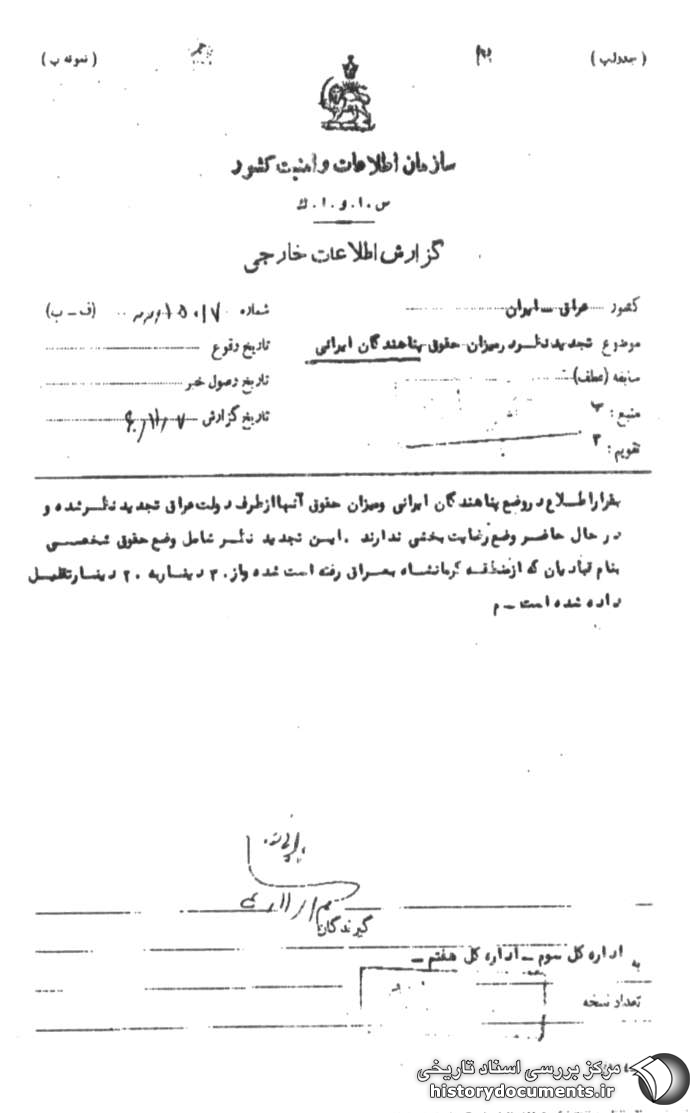 ( جدول پ ) ( نمونه ب )
سازمان اطلاعات و امنیت کشور
س . ا . و . ا . ک
گزارش اطلاعات خارجی
کشور عراق - ایران
شماره (ف - ب)
موضوع تجدید نظر در میزان حقوق پناهندگان ایرانی
تاریخ وقوع
سابقه (عطف)
تاریخ وصول خبر
منبع :
تاریخ گزارش
تقویم : ۳
بقرار اطلاع در وضع پناهندگان ایرانی و میزان حقوق آنها از طرف دولت عراق تجدید نظر شده و
در حال حاضر وضع رضایت بخشی ندارند . این تجدید نظر شامل وضع حقوق شخصی
بنام قبادیان که از منطقه کرمانشاه بعراق رفته است شده و از ۳۰ دینار به ۲۰ دینار تقلیل
داده شده است - م
گیرندگان
به اداره کل سوم - اداره کل هفتم -
تعداد نسخه
مرکز بررسی اسناد تاریخی
historydocuments.ir